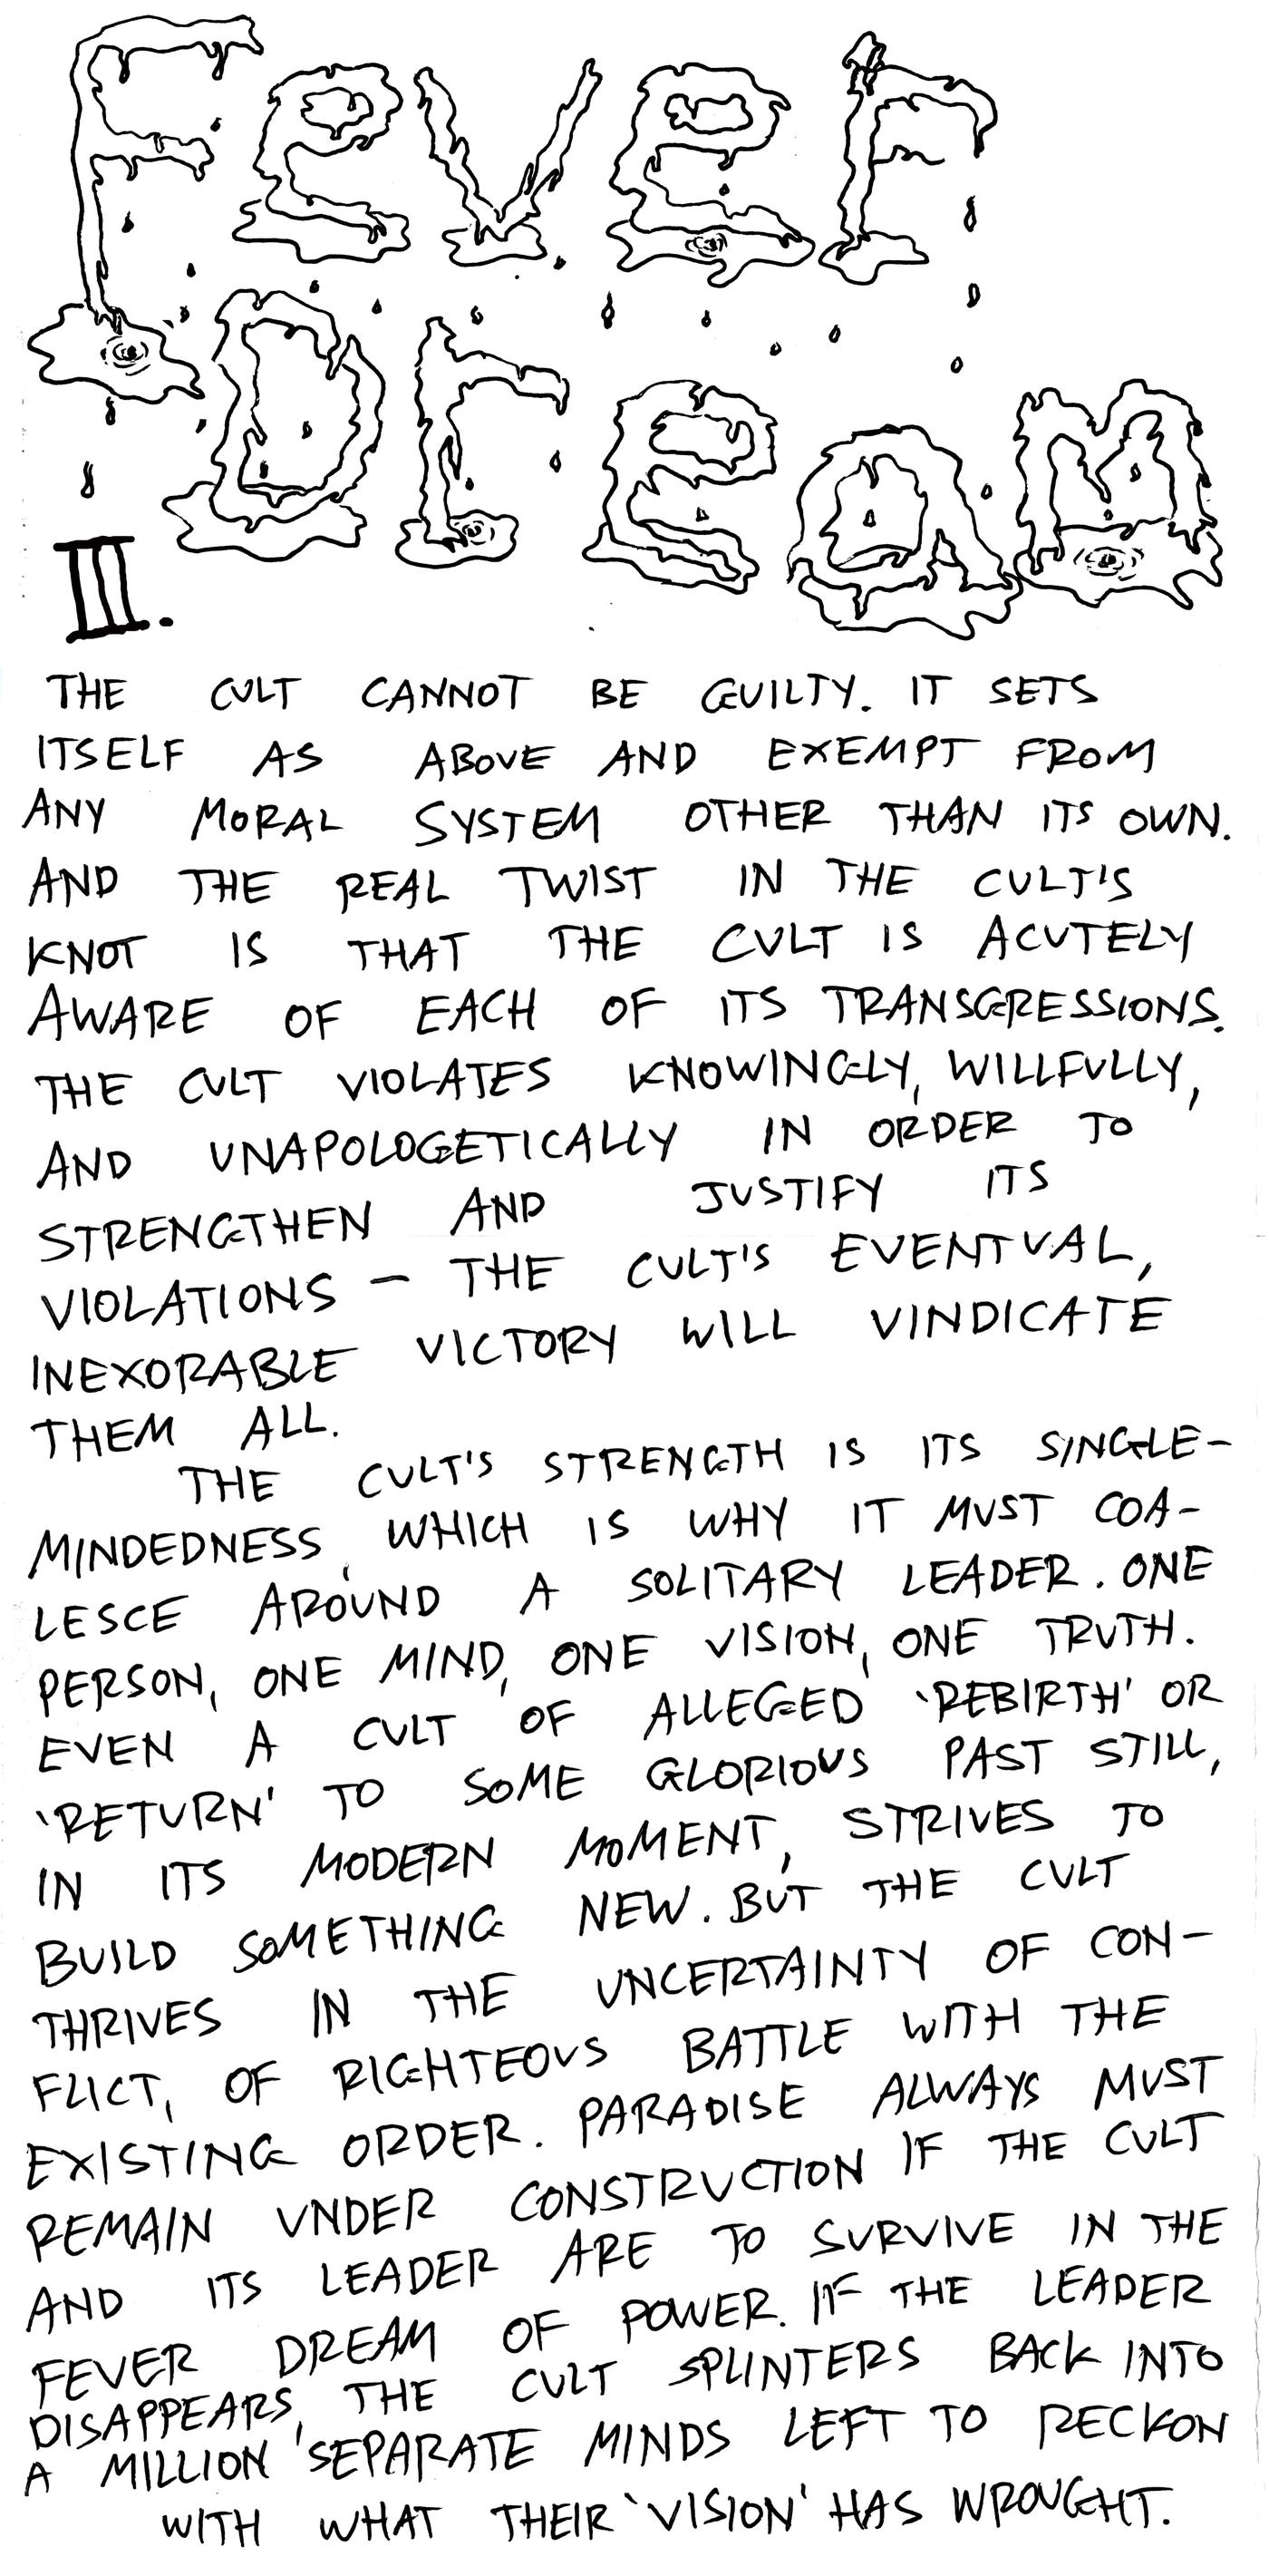 Fever
Dream
III.
THE CULT CANNOT BE GUILTY. IT SETS
ITSELF AS ABOVE AND EXEMPT FROM
ANY MORAL SYSTEM OTHER THAN ITS OWN.
AND THE REAL TWIST IN THE CULT'S
KNOT IS THAT THE CULT IS ACUTELY
AWARE OF EACH OF ITS TRANSGRESSIONS.
THE CULT VIOLATES KNOWINGLY, WILLFULLY,
AND UNAPOLOGETICALLY IN ORDER TO
STRENGTHEN AND JUSTIFY ITS
VIOLATIONS – THE CULT'S EVENTUAL,
INEXORABLE VICTORY WILL VINDICATE
THEM ALL.
THE CULT'S STRENGTH IS ITS SINGLE-
MINDEDNESS, WHICH IS WHY IT MUST COA-
LESCE AROUND A SOLITARY LEADER. ONE
PERSON, ONE MIND, ONE VISION, ONE TRUTH.
EVEN A CULT OF ALLEGED 'REBIRTH' OR
'RETURN' TO SOME GLORIOUS PAST STILL,
IN ITS MODERN MOMENT, STRIVES TO
BUILD SOMETHING NEW. BUT THE CULT
THRIVES IN THE UNCERTAINTY OF CON-
FLICT, OF RIGHTEOUS BATTLE WITH THE
EXISTING ORDER. PARADISE ALWAYS MUST
REMAIN UNDER CONSTRUCTION IF THE CULT
AND ITS LEADER ARE TO SURVIVE IN THE
FEVER DREAM OF POWER. IF THE LEADER
DISAPPEARS, THE CULT SPLINTERS BACK INTO
A MILLION SEPARATE MINDS LEFT TO RECKON
WITH WHAT THEIR 'VISION' HAS WROUGHT.